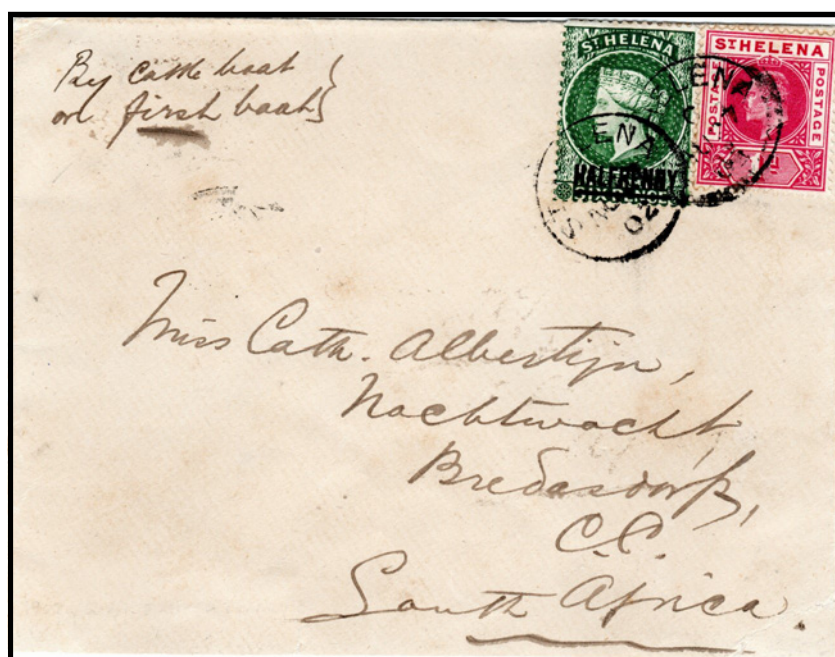 By cattle boat
or first boat
ST HELENA
HALFPENNY
ST HELENA
POSTAGE
POSTAGE
ENA
NO
02
LENA
Miss Cath. Albertijn,
Nachtwacht,
Bredasdorp,
C.C.
South Africa.